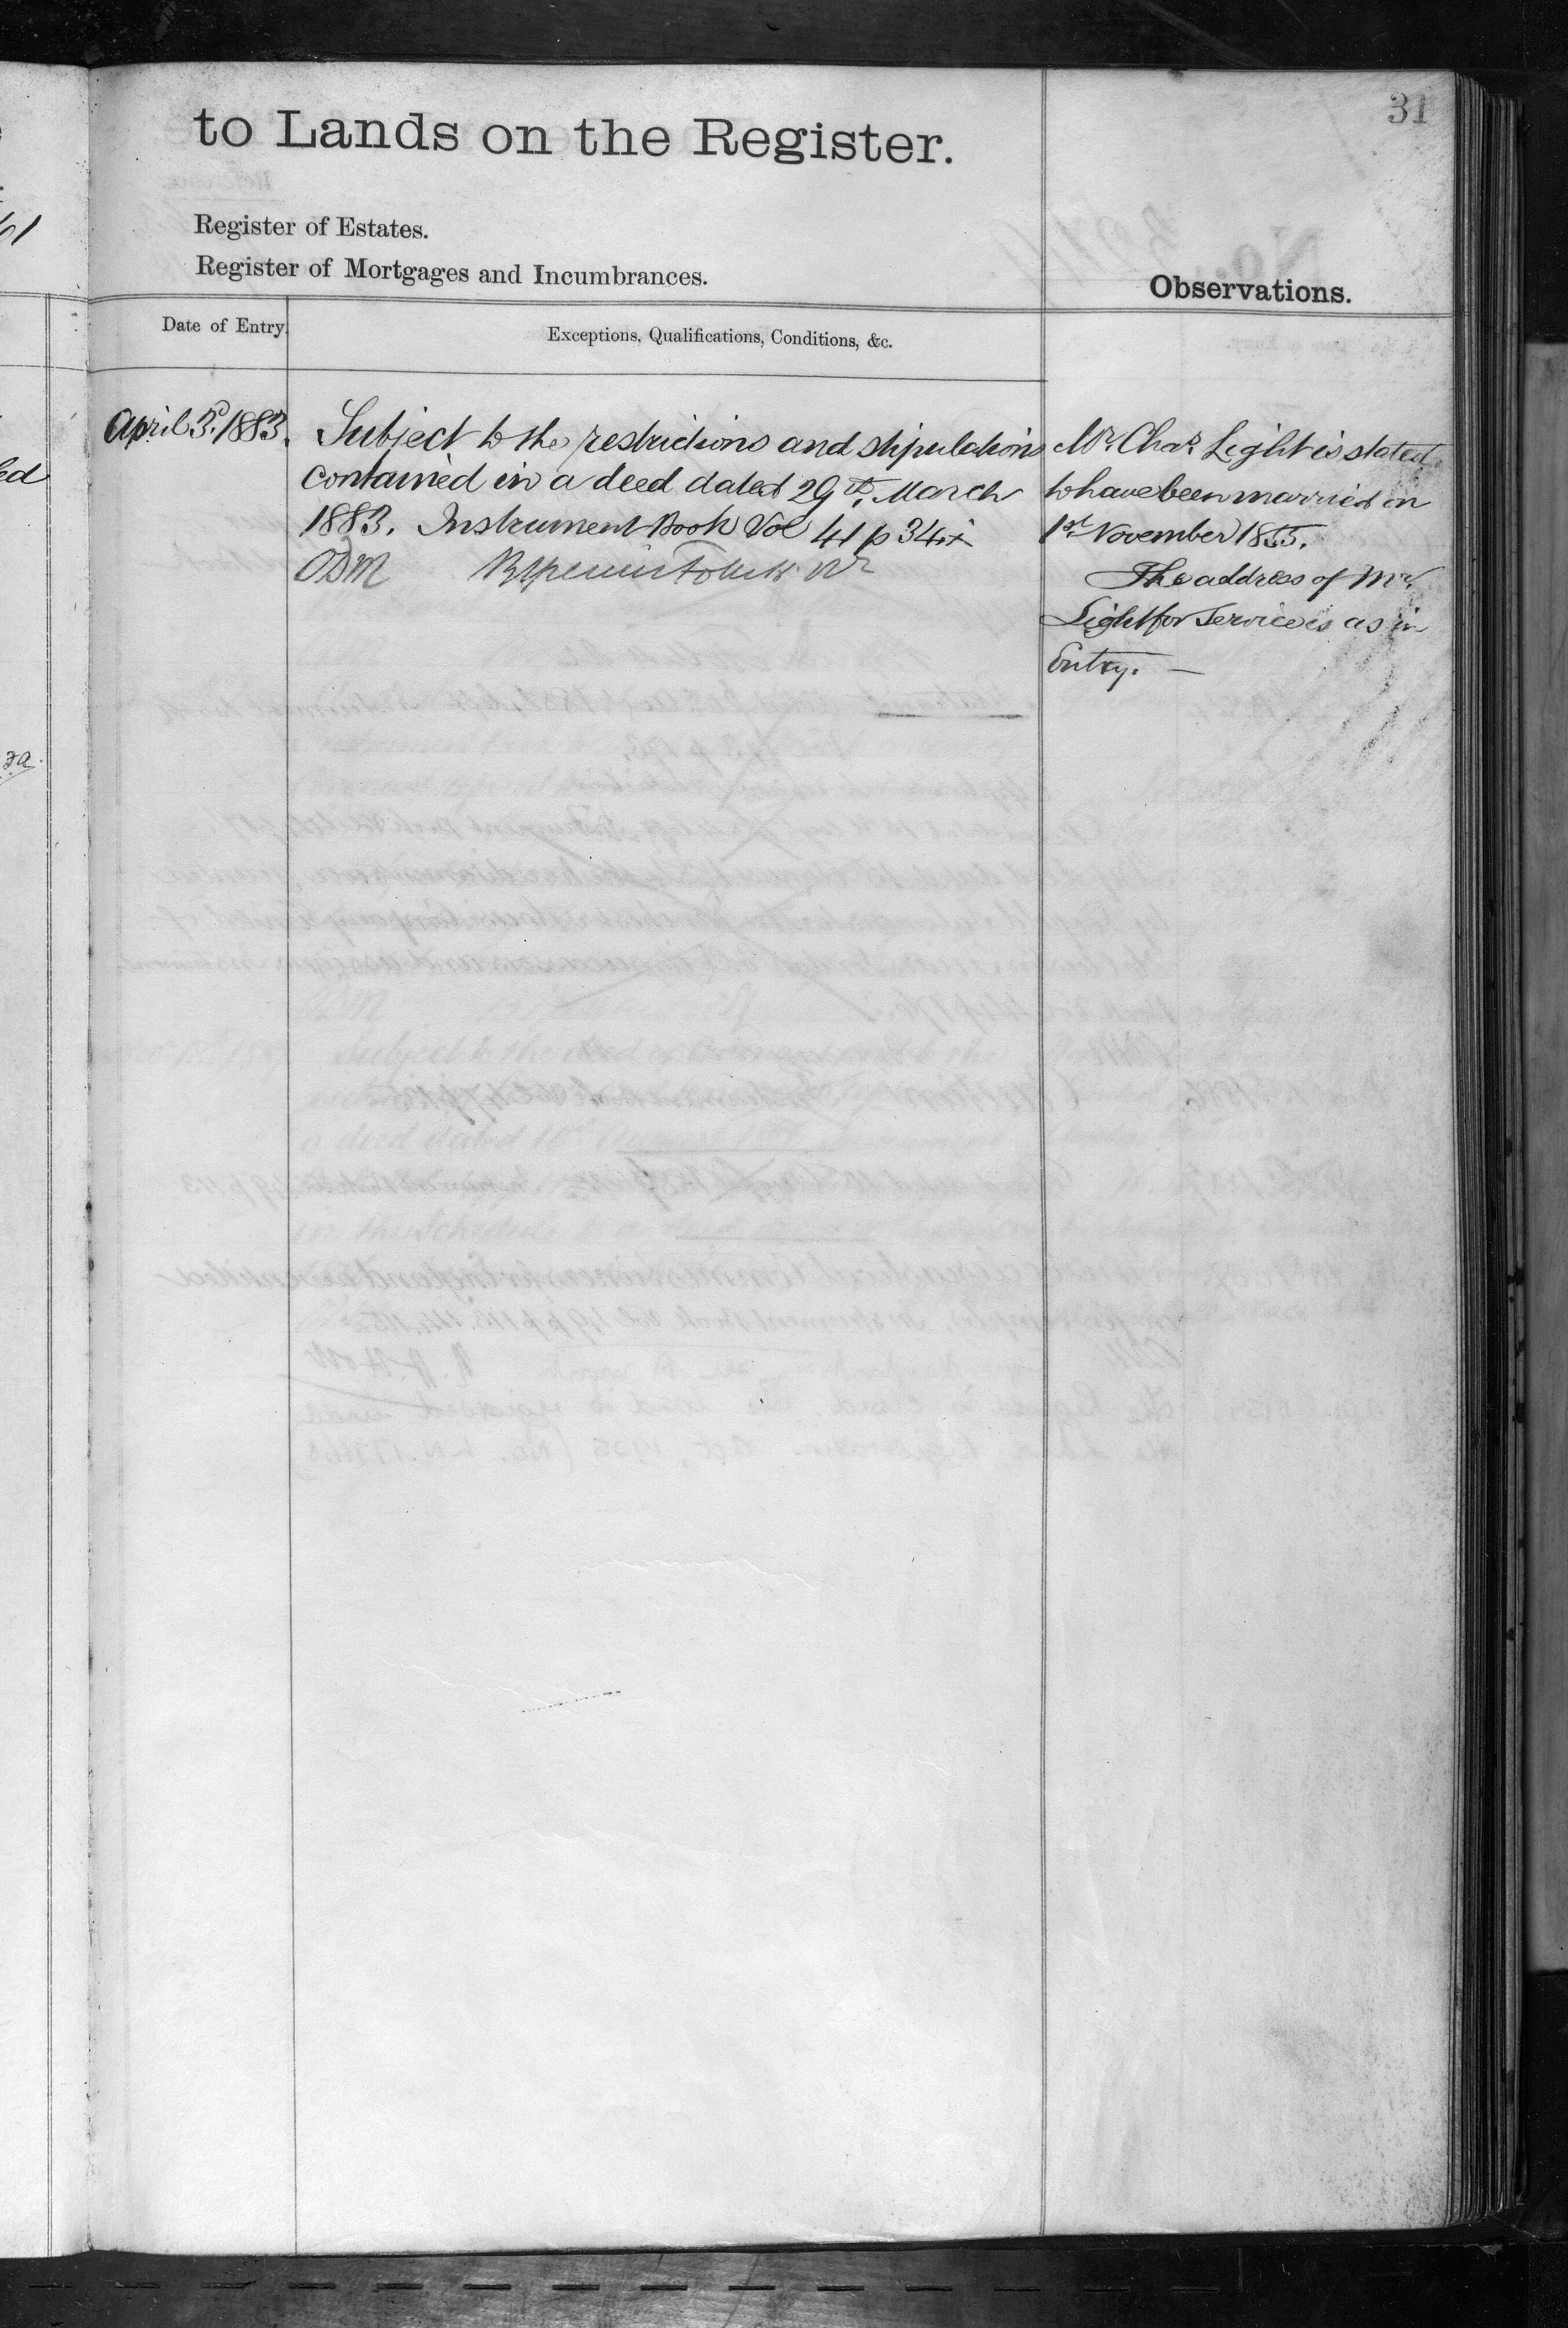 31
to Lands on the Register.
Register of Estates.
Register of Mortgages and Incumbrances.
Observations.
Date of Entry.
Exceptions, Qualifications, Conditions, &c.
April 3rd. 1883.
Subject to the restrictions and stipulations
contained in a deed dated 29th. March
1883. Instrument Book Vol 41 p 34
Mr. Chas. Light is stated
to have been married on
1st November 1855.
The address of Mr.
Light for Service is as in
Entry. —